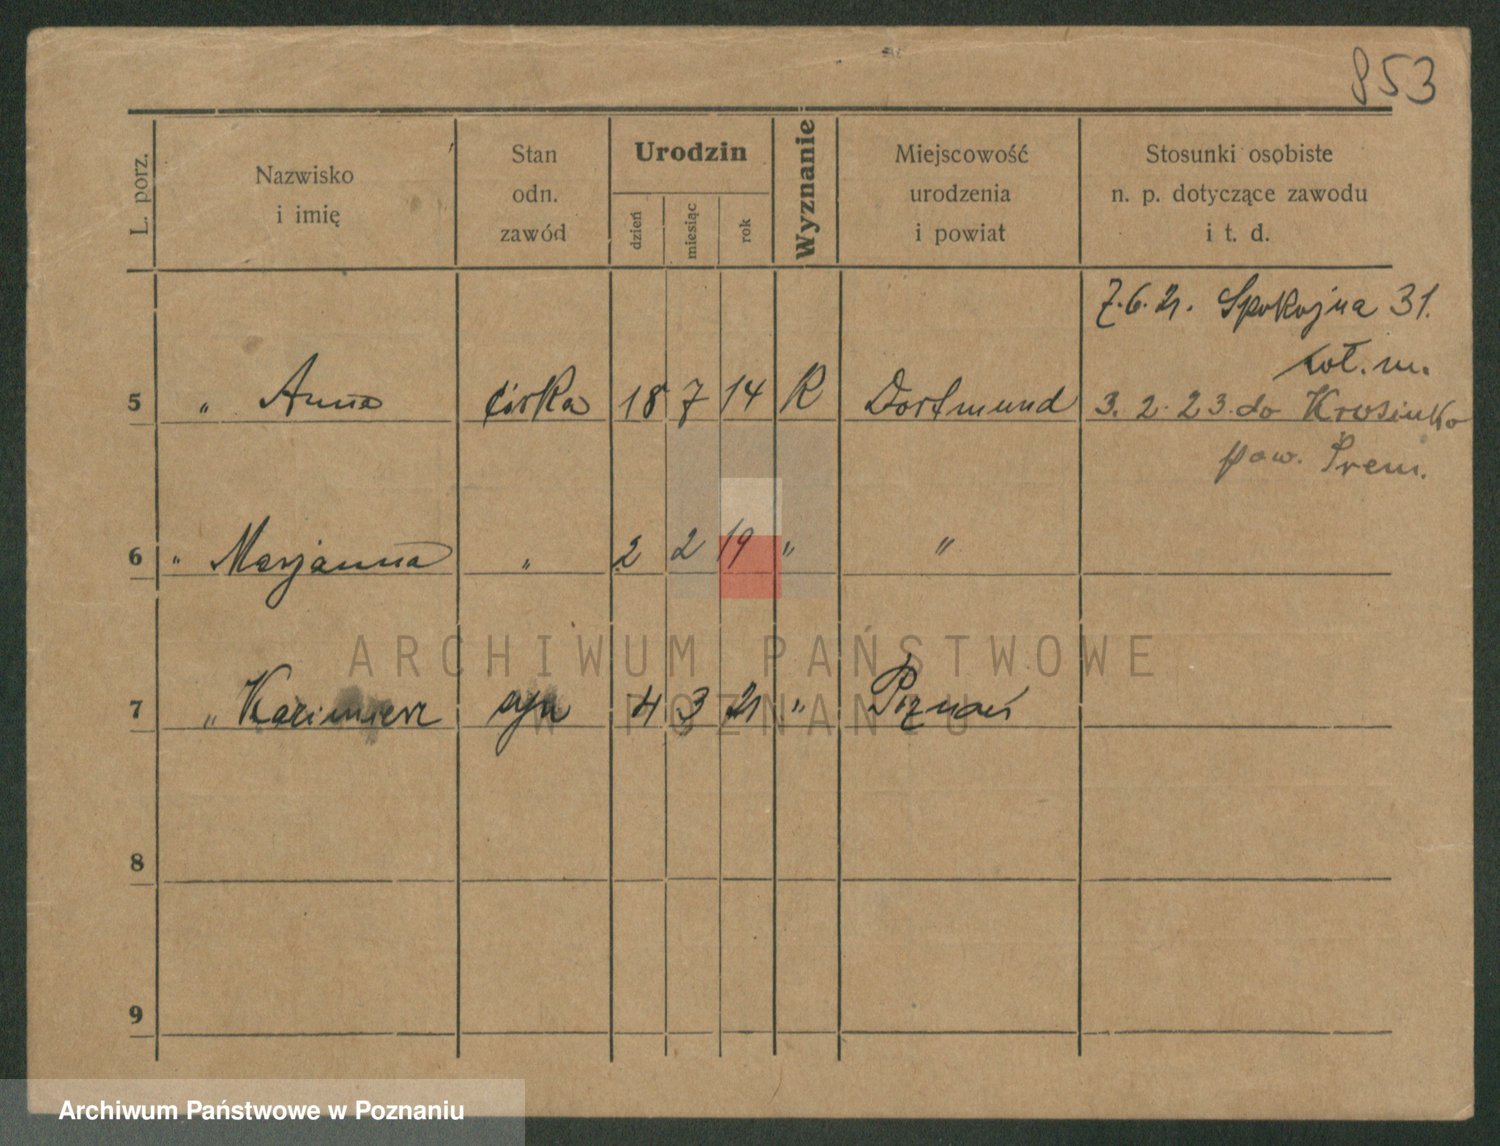 853
L. porz.
Nazwisko
i imię
Stan
odn.
zawód
Urodzin
dzień
miesiąc
rok
Wyznanie
Miejscowość
urodzenia
i powiat
Stosunki osobiste
n. p. dotyczące zawodu
i t. d.
7.6.21. Spokojna 31.
m.
5 " Anna córka 18 7 14 R Dortmund 3. 2. 23. do Krosinko
pow. Śrem.
6 " Marjanna " 2 2 19 " "
ARCHIWUM PAŃSTWOWE
W POZNANIU
7 " Kazimierz syn 4 3 21 " Poznań
8
9
Archiwum Państwowe w Poznaniu